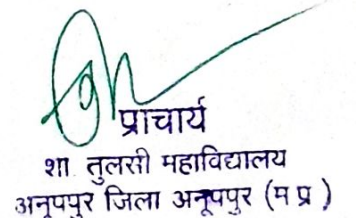 प्राचार्य
शा. तुलसी महाविद्यालय
अनूपपुर जिला अनूपपुर (म प्र )